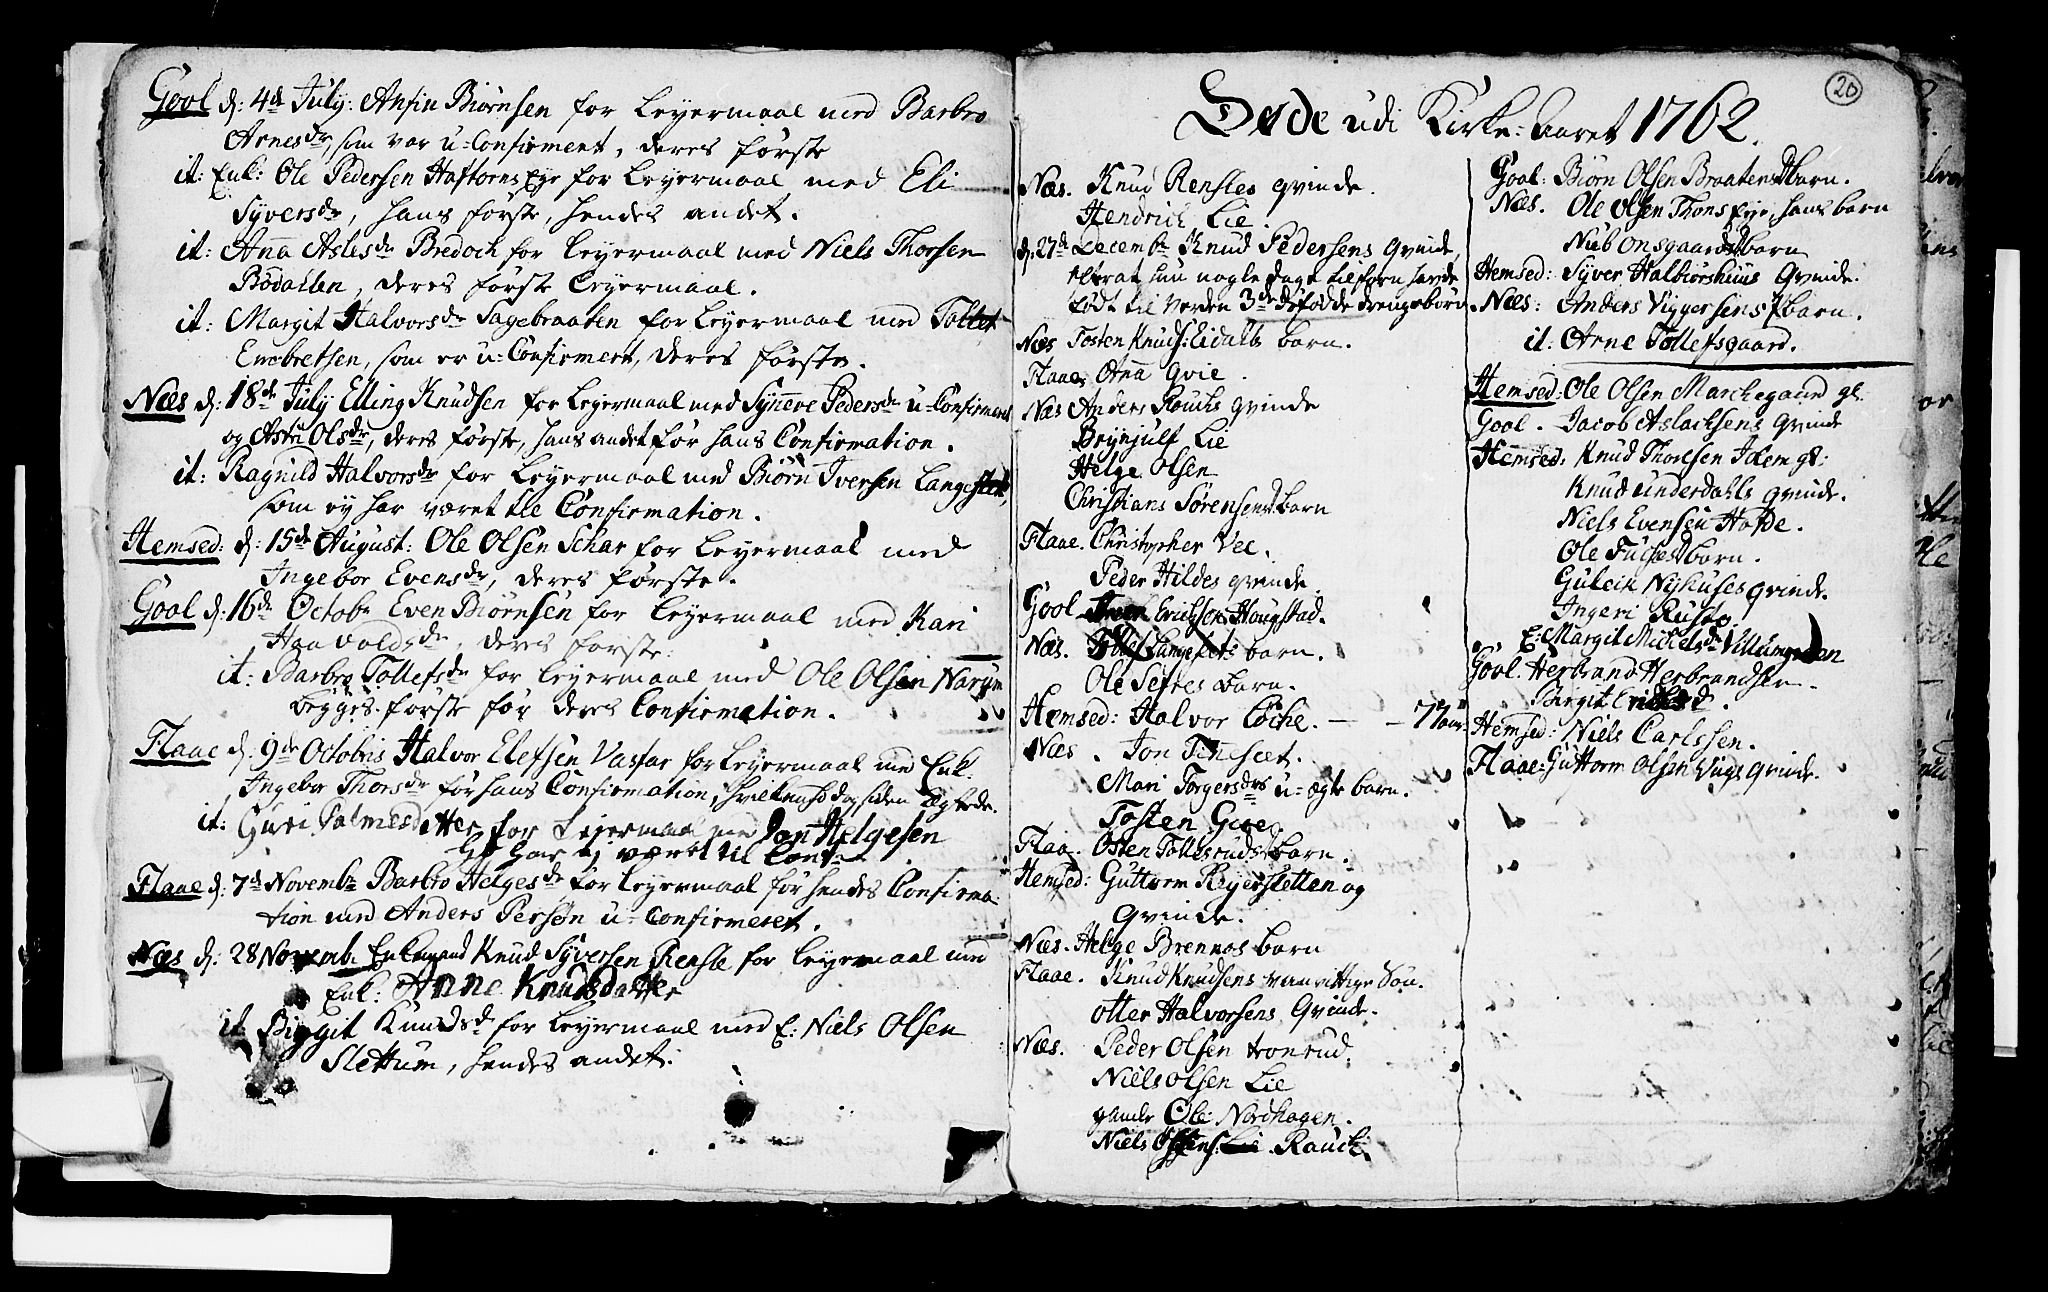 Gool d: 4de July: Anfin Biørnsen for Leyermaal med Barbro
Arnesdr, som var u-Confirmert, deres første
it: Enk: Ole Pedersen Haftorns Eye for Leyermaal med Eli
Syversdr, hans første, hendes andet.
it: Anna Aslesdr Bredoch for Leyermaal med Niels Thorsen
Bødalen, deres første Leyermaal.
it: Margit Halvorsdr Sagebraaten for Leyermaal med Tollef
Emebretsen, som er u-Confirmert, deres første.
Næs d: 18de July Elling Knudsen for Leyermaal med Synneve Pedersdr u-Confirmeret
og Astri Olsdr, deres første, hans andet før hans Confirmation.
it: Ragnild Halvorsdr for Leyermaal med Biørn Iversen Langeslet,
som ey har været til Confirmation.
Hemsed: d: 15de August: Ole Olsen Schar for Leyermaal med
Ingebor Evensdr, deres første.
Gool d: 16de Octobr Even Biørnsen for Leyermaal med Kari
Haavoldsdr, deres første.
it: Barbro Tollefsdr for Leyermaal med Ole Olsen Narum
begges første før deres Confirmation.
Flaae d: 9de Octobris Halvor Elefsen Vasfar for Leyermaal med Enk:
Ingebor Thorsdr før hans Confirmation, hvilken hand og siden ægtede.
it: Guri Palmesdotter for Leyermaal med Jon Helgesen
har ej været til Confr
Flaae d: 7de Novembr Barbro Helgesdr for Leyermaal før hendes Confirma-
tion med Anders Persøn u-Confirmeret.
Næs d: 28 Novemb: Enkemand Knud Syversen Rensle for Leyermaal med
Enk: Anne Knudsdatter
it: Birgit Knudsdr for Leyermaal med E: Niels Olsen
Slettum, hendes andet.
20
Døde udi Kirke-Aaret 1762.
Næs. Knud Rensles qvinde.
Hendrich Lie.
d: 27de Decembr Knud Pedersens Qvinde,
efterat hun nogle dage tilforn hafde
født til Verden 3de døfødde drengebørn
Næs Tosten Knuds: Eidals barn.
Flaae, Anna Qvie.
Næs Anders Rouchs qvinde
Brynjulf Lie
Helge Olsen
Christians Sørensens barn
Flaae. Christopher Vee.
Peder Hildes qvinde
Gool Erichsen Haugstad.
Næs. Tollef Langeslets barn.
Ole Sefres barn.
Hemsed: Halvor Løche. — 77 aar
Næs. Jon Tinescet.
Mari Torgersdrs u-ægte barn.
Tosten Gue.
Flaa. Osten Tollesruds barn.
Hemsed: Guttorm Reyersletten og
Qvinde.
Næs. Helge Brennas barn
Flaae. Knud Knudsens vanvittige Søn.
Otter Halvorsens Qvinde.
Næs. Peder Olsen tronrud.
Niels Olsen Lie
gamle Ole Nordhagen.
Niels Rauch.
Gool: Biørn Olsen Braatens barn.
Næs. Ole Olsen Thons Eye, hans barn
Nub Onsgaards barn
Hemsed: Syver Halbiørshuus Qvinde.
Næs: Anders Viggersens barn.
it: Arne Tollefsgaard.
Hemsed: Ole Olsen Marchegaard gl.
Gool. Jacob Aslachsens Qvinde
Hemsed: Knud Thoresen Idem gl:
Knud underdahls qvinde.
Niels Evensen Hofde.
Ole Fuchses barn.
Guleich Nyhuses qvinde.
Ingeri Rusto.
E: Margit Michelsdr Villumgarden
Gool. Herbrand Herbrandsen.
Birgit
Hemsed: Niels Carlssen.
Flaae: Guttorm Olsen Viigs Qvinde.